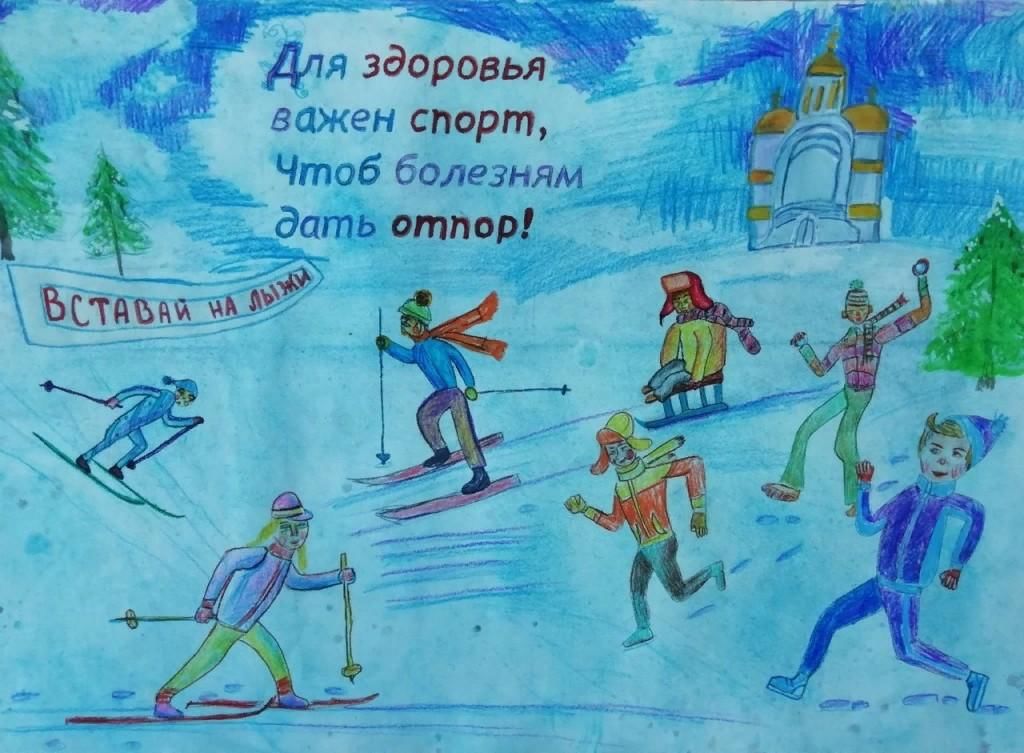 Для здоровья
важен спорт,
Чтоб болезням
дать отпор!
Вставай на лыжи